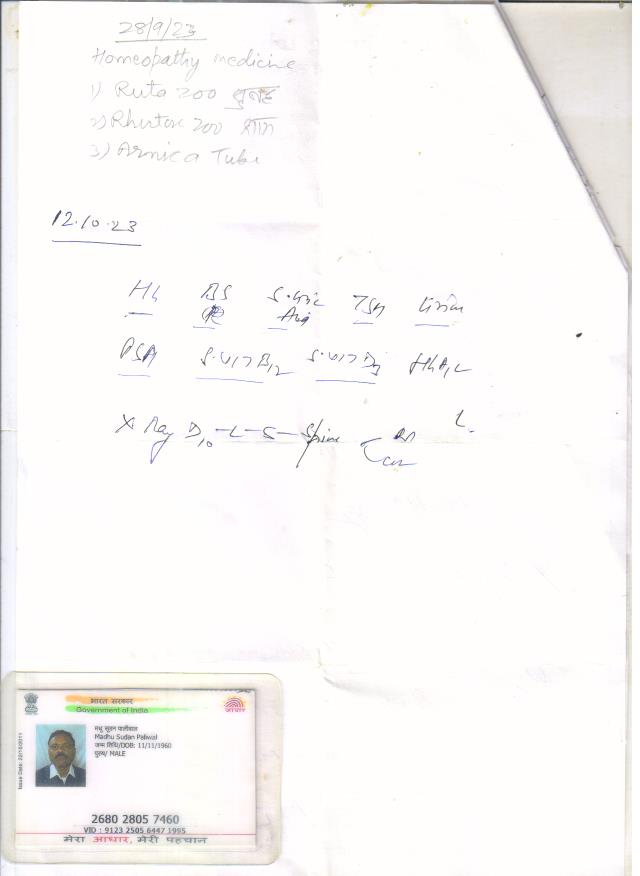 28/9/23
Homeopathy medicine
1) Ruta 200 सुबह
2) Rhustox 200 शाम
3) Arnica Tube
12.10.23
Hb BS S.Uric TSH Urine
Acid
PSA S.Vit B12 S.Vit D3 HbA1c
X-Ray D10-L-S-Spine AP
भारत सरकार
Government of India
आधार
मधु सूदन पालीवाल
Madhu Sudan Paliwal
जन्म तिथि/DOB: 11/11/1960
पुरुष/ MALE
Issue Date: 22/10/2011
2680 2805 7460
VID : 9123 2505 6447 1995
मेरा आधार, मेरी पहचान